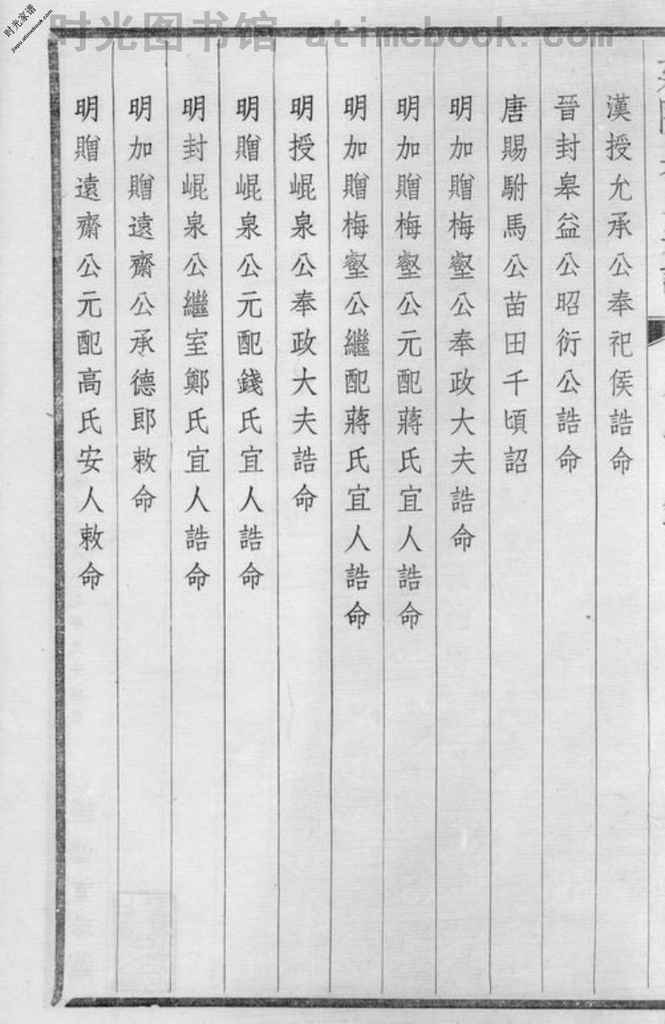 时光图书馆 atimebook.com
时光家谱
jiapu.atimebook.com
漢授允承公奉祀侯誥命
晉封皋益公昭衍公誥命
唐賜駙馬公苗田千頃詔
明加贈梅壑公奉政大夫誥命
明加贈梅壑公元配蔣氏宜人誥命
明加贈梅壑公繼配蔣氏宜人誥命
明授崐泉公奉政大夫誥命
明贈崐泉公元配錢氏宜人誥命
明封崐泉公繼室鄭氏宜人誥命
明加贈遠齋公承德郎敕命
明贈遠齋公元配高氏安人敕命